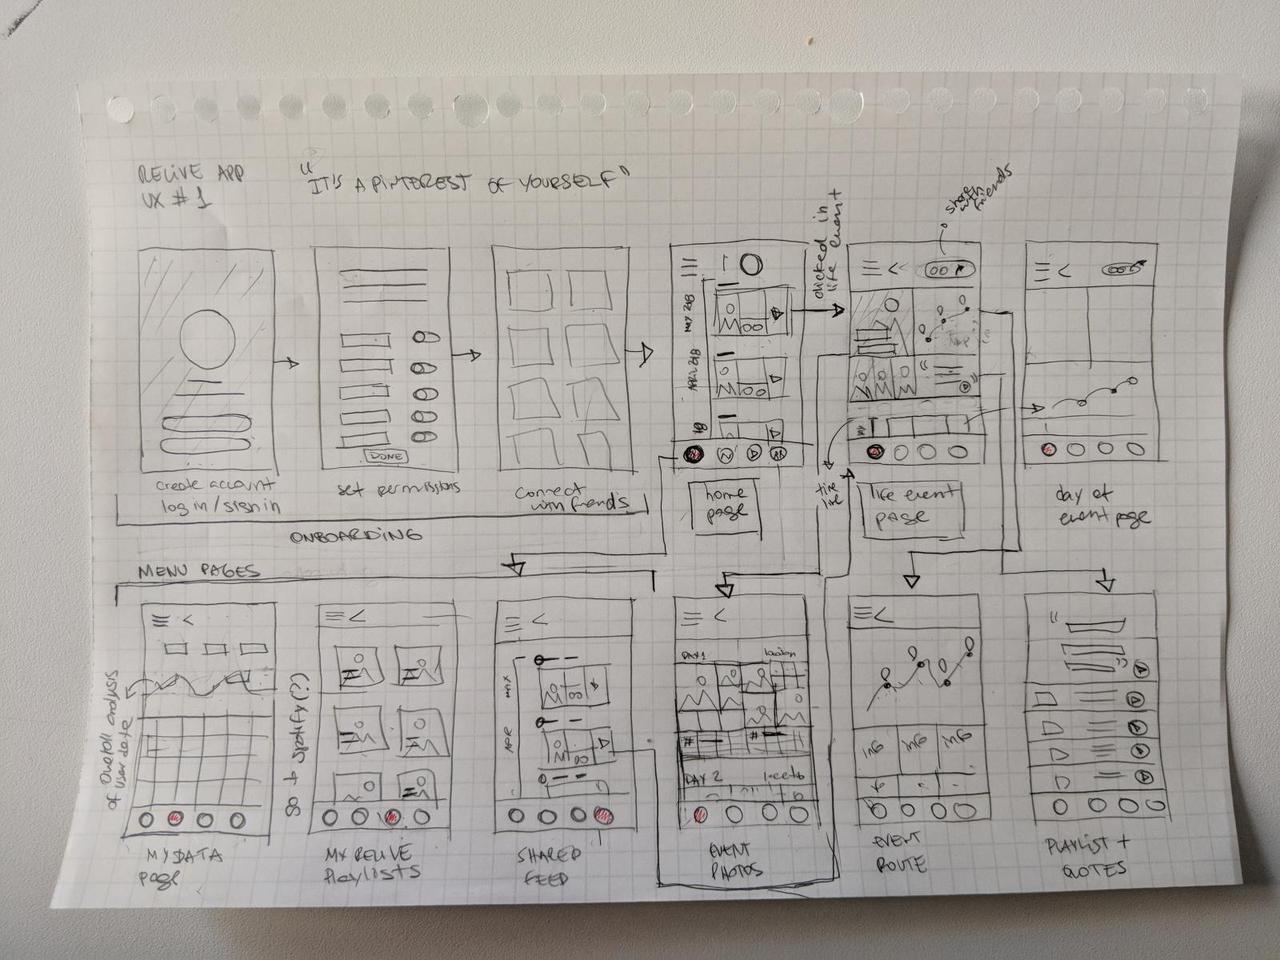 RELIVE APP
UX #1
"IT'S A PINTEREST OF YOURSELF"
share
with
friends
clicked in
life event
MAY 2018
APRIL 2018
DONE
create account
log in/sign in
set permissions
connect
with friends
ONBOARDING
home
page
life event
page
day of
event page
MENU PAGES
Overall analysis
of user data
MAY
APR
DAY 1
location
DAY 2
info
info
info
MY DATA
page
MY RELIVE
Playlists
SHARED
FEED
EVENT
PHOTOS
EVENT
ROUTE
PLAYLIST +
QUOTES